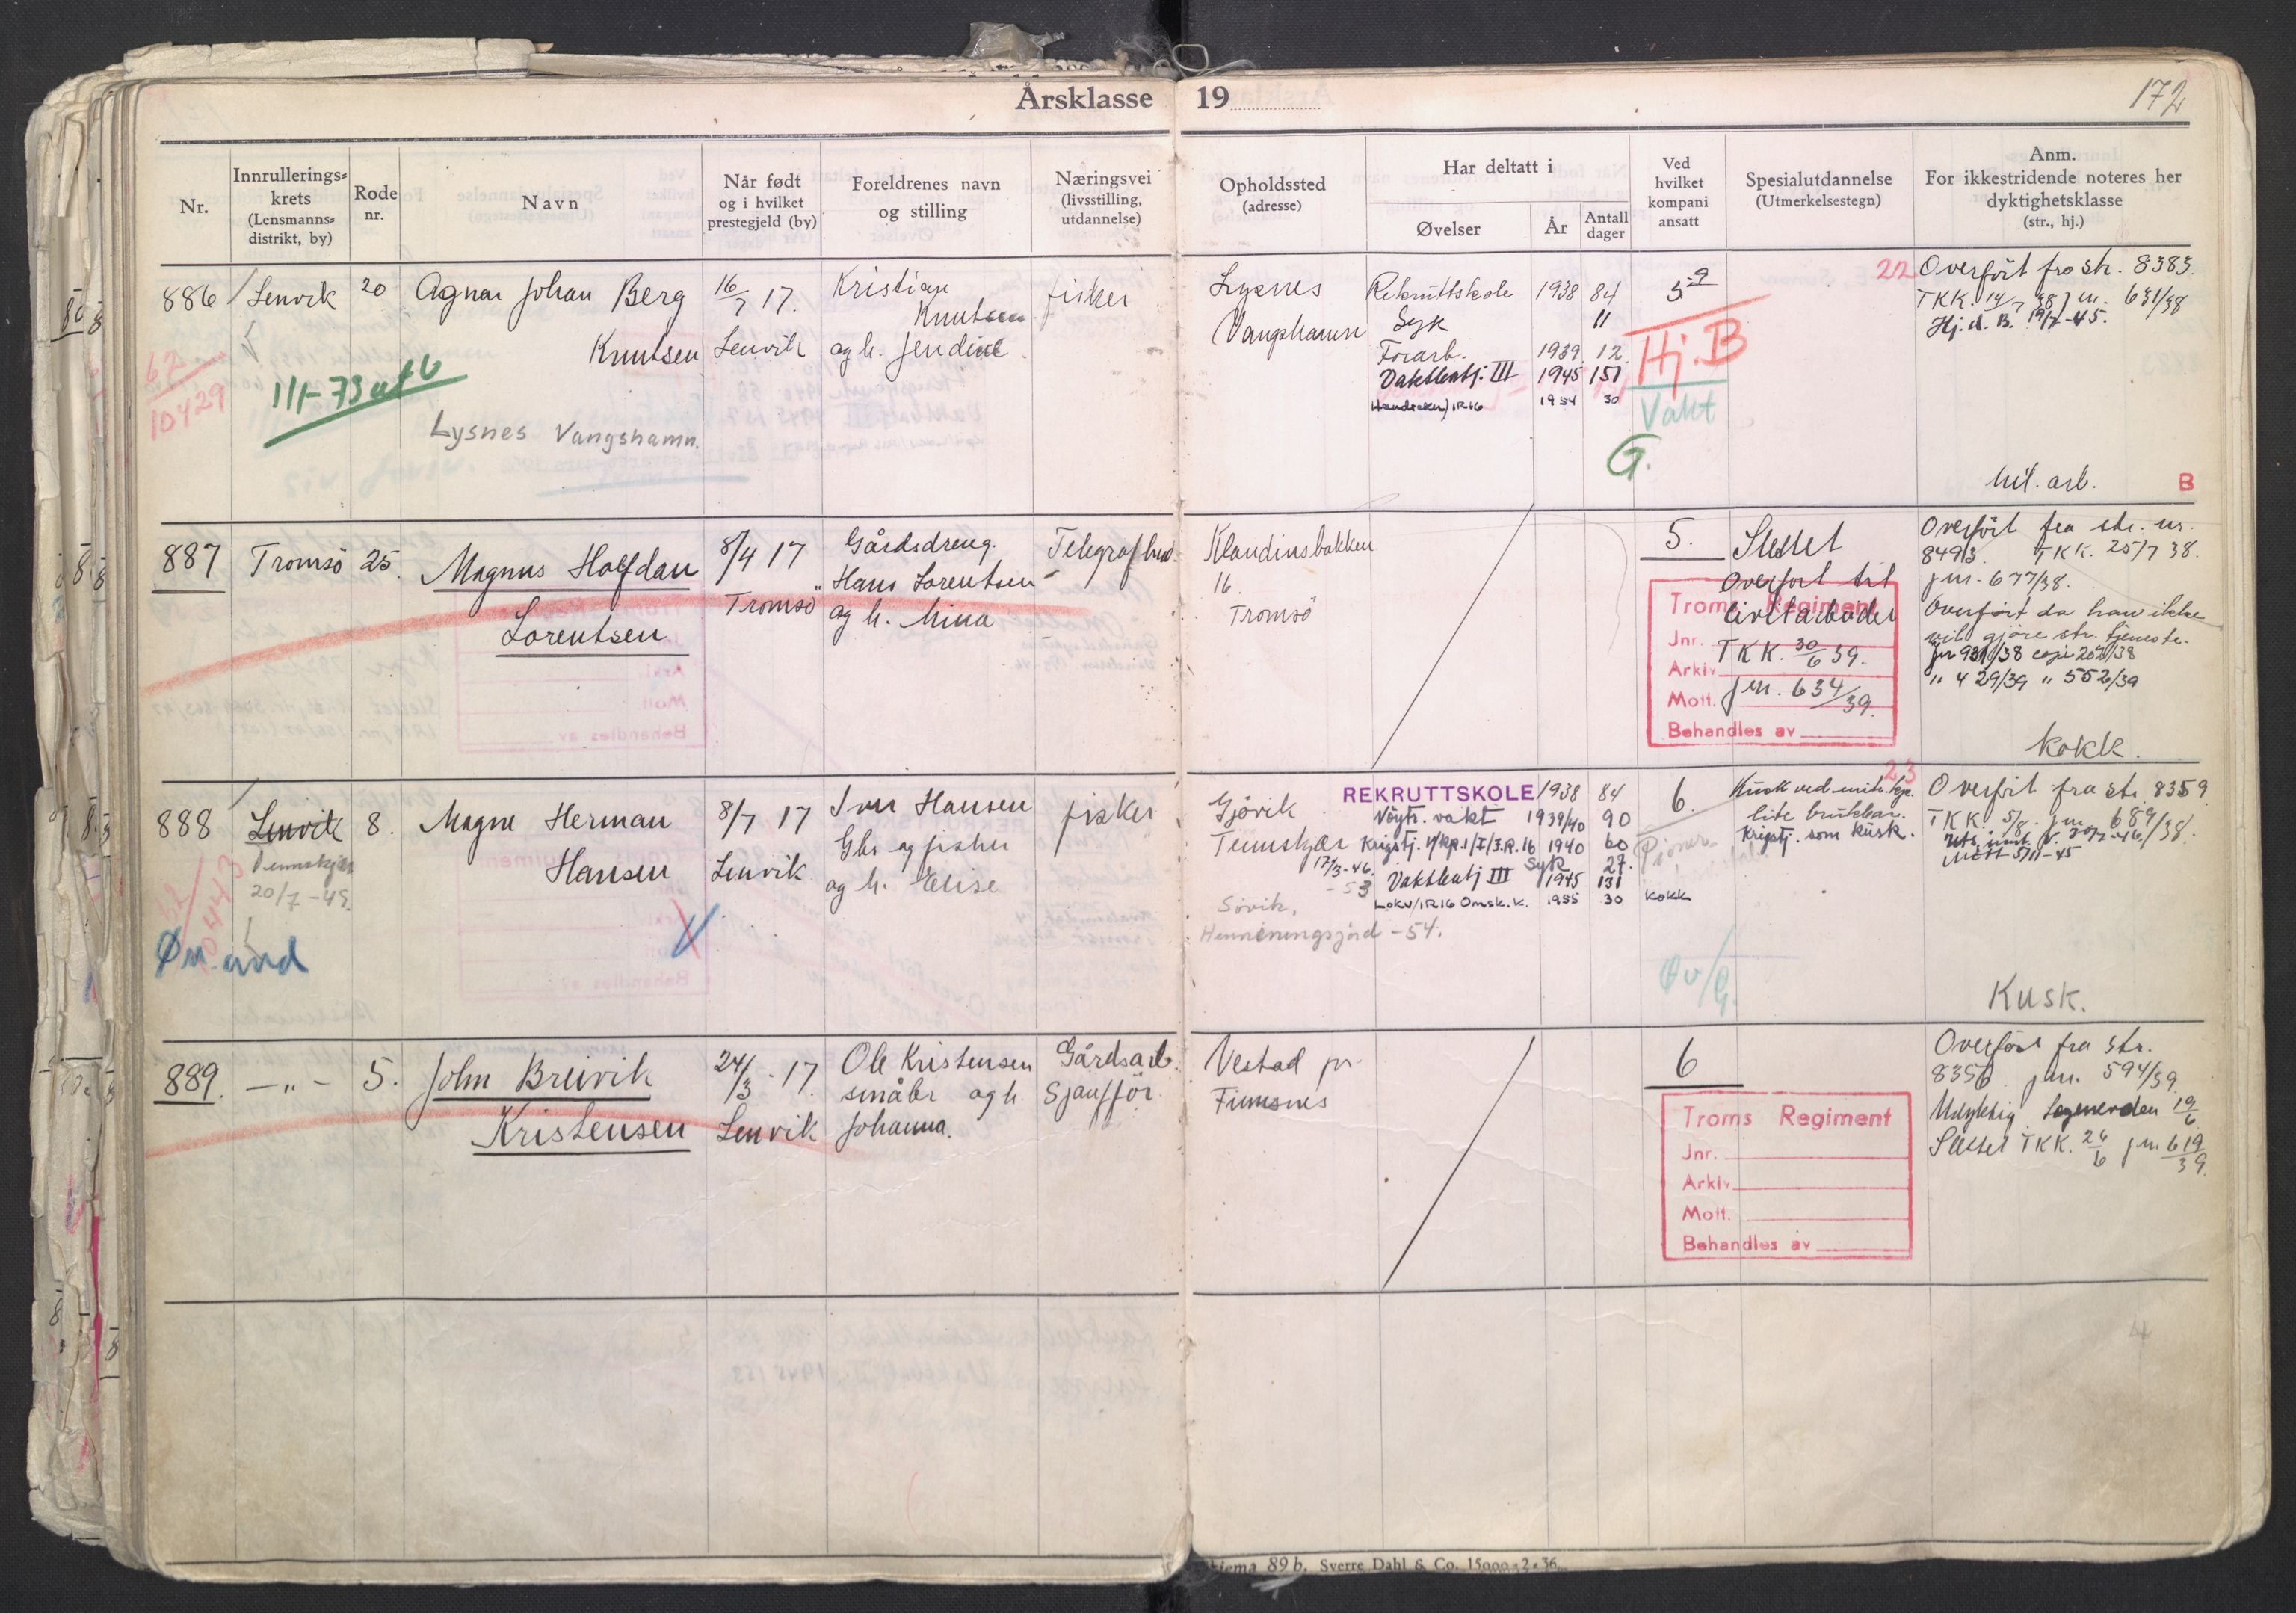 Årsklasse 19
172
Nr.
Innrullerings-
krets
(Lensmanns-
distrikt, by)
Rode
nr.
Navn
Når født
og i hvilket
prestegjeld (by)
Foreldrenes navn
og stilling
Næringsvei
(livsstilling,
utdannelse)
Opholdssted
(adresse)
Har deltatt i
Øvelser
År
Antall
dager
Ved
hvilket
kompani
ansatt
Spesialutdannelse
(Utmerkelsestegn)
Anm.
For ikkestridende noteres her
dyktighetsklasse
(str., hj.)
886 Lenvik 20 Agnar Johan Berg
Knutsen
16/7 17.
Lenvik
Kristian
Knutsen
og h. Jendine
fisker
62
10429
1/1-73
Lysnes Vangshamn.
Lysnes
Vangshamn
Rekruttskole 1938 84
Syk 11
Forarb. 1939 12
Vaktbatj. III 1945 151
IR16 1954 30
Hj. B
Vakt
G.
22
Overført fra str. 8383.
TKK. 14/7 38 jnr. 631/38
Hj. d. B. 19/7-45.
Mil. arb.
B
887 Tromsö 25. Magnus Halfdan
Lorentsen
8/4 17
Tromsö
Gårdsdreng.
Hans Lorentsen
og h. Mina
Telegrafbud.
Klaudiusbakken
16.
Tromsö
5.
Slettet
Overført til
Civilarbeider
TKK. 30/6 39.
jnr. 634/39.
Troms Regiment
Jnr.
Arkiv
Mott.
Behandles av
Overført fra str. nr.
8493. TKK. 25/7 38.
jnr. 677/38.
Overført da han ikke
vil gjöre str. tjeneste.
jnr 931/38 copi 202/38
" 429/39 " 552/39
Kokk.
888 Lenvik 8. Magne Herman
Hansen
20/7-49.
8/7 17
Lenvik
Iver Hansen
Gbr og fisker
og h. Elise
fisker
62
10443
Gjövik
Tennskjær
17/3-46.
-53
Sövik,
-54.
REKRUTTSKOLE 1938 84
Nöytr. vakt 1939/40 90
Krigstj. 1/kp.1/I/I.R.16 1940 60
Syk 27.
Vaktbatj III 1945 131
Lokv/IR16 Omsk.k. 1955 30
6.
Pioner
Kokk
Öv/G.
23
Kusk ved mitr.kp.
lite brukbar.
Krigstj. som kusk.
Overført fra str. 8359
TKK. 5/8. jnr. 689/38.
Mött 5/11-45
Kusk.
889. —"— 5. John Breivik
Kristensen
24/3-17
Lenvik
Ole Kristensen
småbr og h.
Johanna.
Gårdsarb.
Sjauffør
Vestad pr.
Finnsnes
6
Troms Regiment
Jnr.
Arkiv
Mott.
Behandles av
Overført fra str.
8356 jnr. 594/39.
Udyktig Legenerden 19/6
Slettet TKK. 26/6 jnr 619/39.
4
89 b. Sverre Dahl & Co. 15000-2-36.